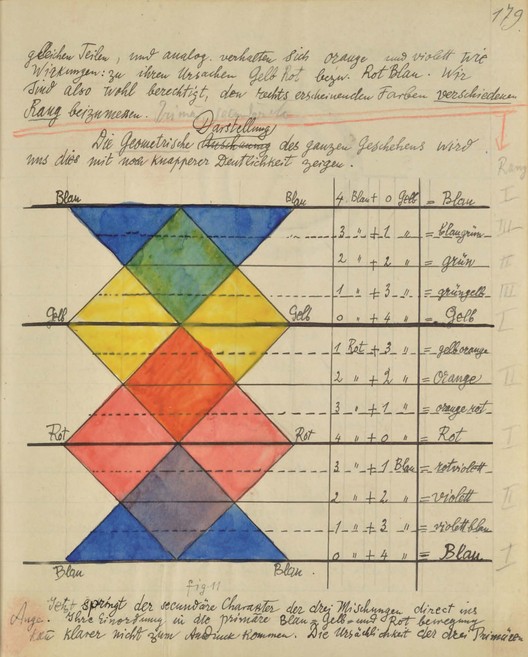 179.
gleichen Teilen, und analog. verhalten sich orange und violett wie
Wirkungen: zu ihren Ursachen Gelb Rot bezw. Rot Blau. Wir
sind also wohl berechtigt, den rechts erscheinenden Farben verschiedenen
Rang beizumessen.
Darstellung
Die Geometrische des ganzen Geschehens wird
uns dies mit noch knapperer Deutlichkeit zeigen.
Rang
Blau Blau 4 Blau + 0 Gelb = Blau I
3 " + 1 " = blaugrün III
2 " + 2 " = grün II
1 " + 3 " = grüngelb III
Gelb Gelb 0 " + 4 " = Gelb I
1 Rot + 3 " = gelborange
2 " + 2 " = Orange II
3 " + 1 " = orange rot
Rot Rot 4 " + 0 " = Rot I
3 " + 1 Blau = rotviolett
2 " + 2 " = violett II
1 " + 3 " = violettblau
0 " + 4 " = Blau I
Blau Blau.
fig 11
Jetzt springt der secundäre Charakter der drei Mischungen direct ins
Auge. Ihre Einordnung in die primäre Blau = Gelb = und Rot bewegung
klarer nicht zum Ausdruck kommen. Die Ursächlichkeit der drei Primären